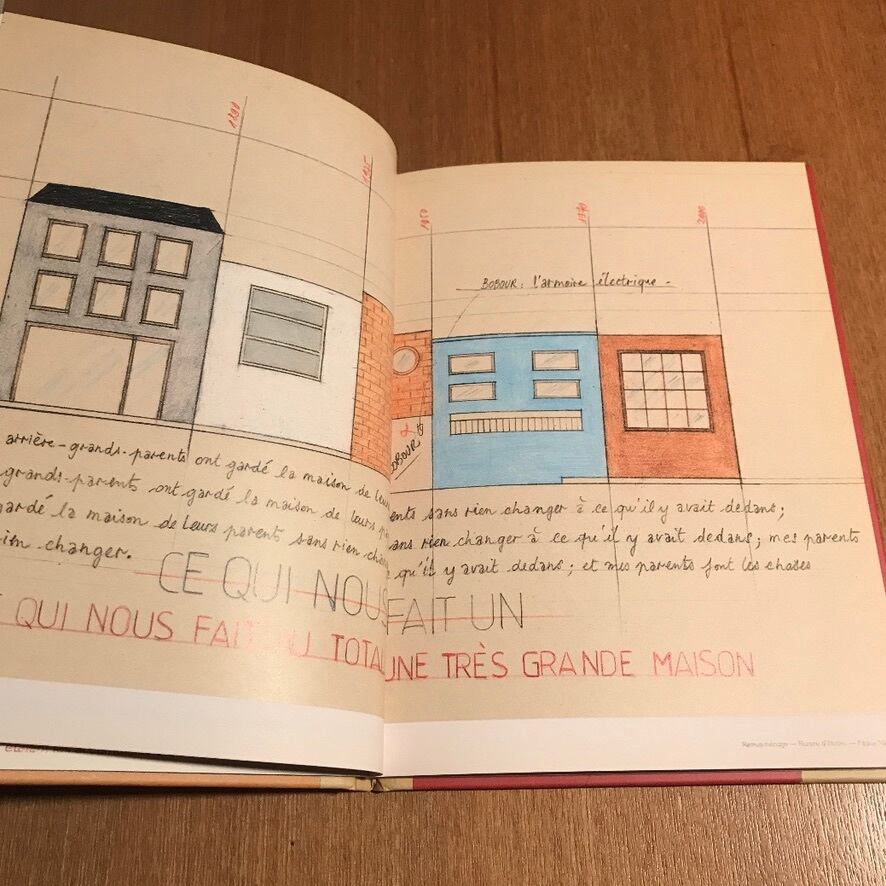 1950
1970
2000
BOBOUR : l'armoire électrique.
arrière-grands-parents ont gardé la maison de leurs parents sans rien changer à ce qu'il y avait dedans;
grands-parents ont gardé la maison de leurs parents sans rien changer à ce qu'il y avait dedans; mes parents
gardé la maison de leurs parents sans rien changer à ce qu'il y avait dedans; et mes parents font les choses
changer.
CE QUI NOUS FAIT UN
QUI NOUS FAIT AU TOTAL UNE TRÈS GRANDE MAISON